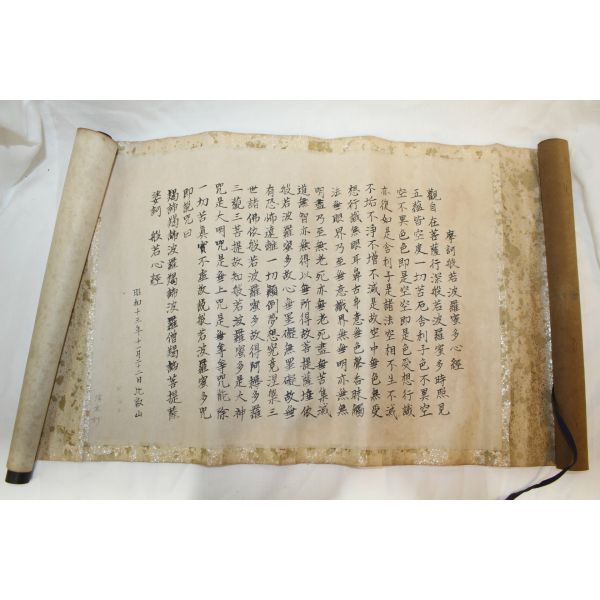 摩訶般若波羅蜜多心経
觀自在菩薩行深般若波羅蜜多時照見
五蘊皆空度一切苦厄舎利子色不異空
空不異色色即是空空即是色受想行識
亦復如是舎利子是諸法空相不生不滅
不垢不浄不増不減是故空中無色無受
想行識無眼耳鼻舌身意無色聲香味觸
法無眼界乃至無意識界無無明亦無無
明盡乃至無老死亦無老死盡無苦集滅
道無智亦無得以無所得故菩提薩埵依
般若波羅蜜多故心無罣礙無罣礙故無
有恐怖遠離一切顚倒夢想究竟涅槃三
世諸佛依般若波羅蜜多故得阿耨多羅
三藐三菩提故知般若波羅蜜多是大神
咒是大明咒是無上咒是無等等咒能除
一切苦真實不虚故説般若波羅蜜多咒
即説咒曰
羯諦羯諦波羅羯諦波羅僧羯諦菩提薩
婆訶 般若心経
昭和十三年十一月二十二日 比叡山